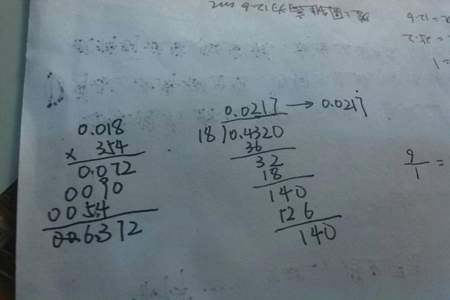 0.018
× 354
0.072
0090
0054
6.372
0.0217 → 0.0217̇
18)0.4320
36
32
18
140
126
140
9
1 =